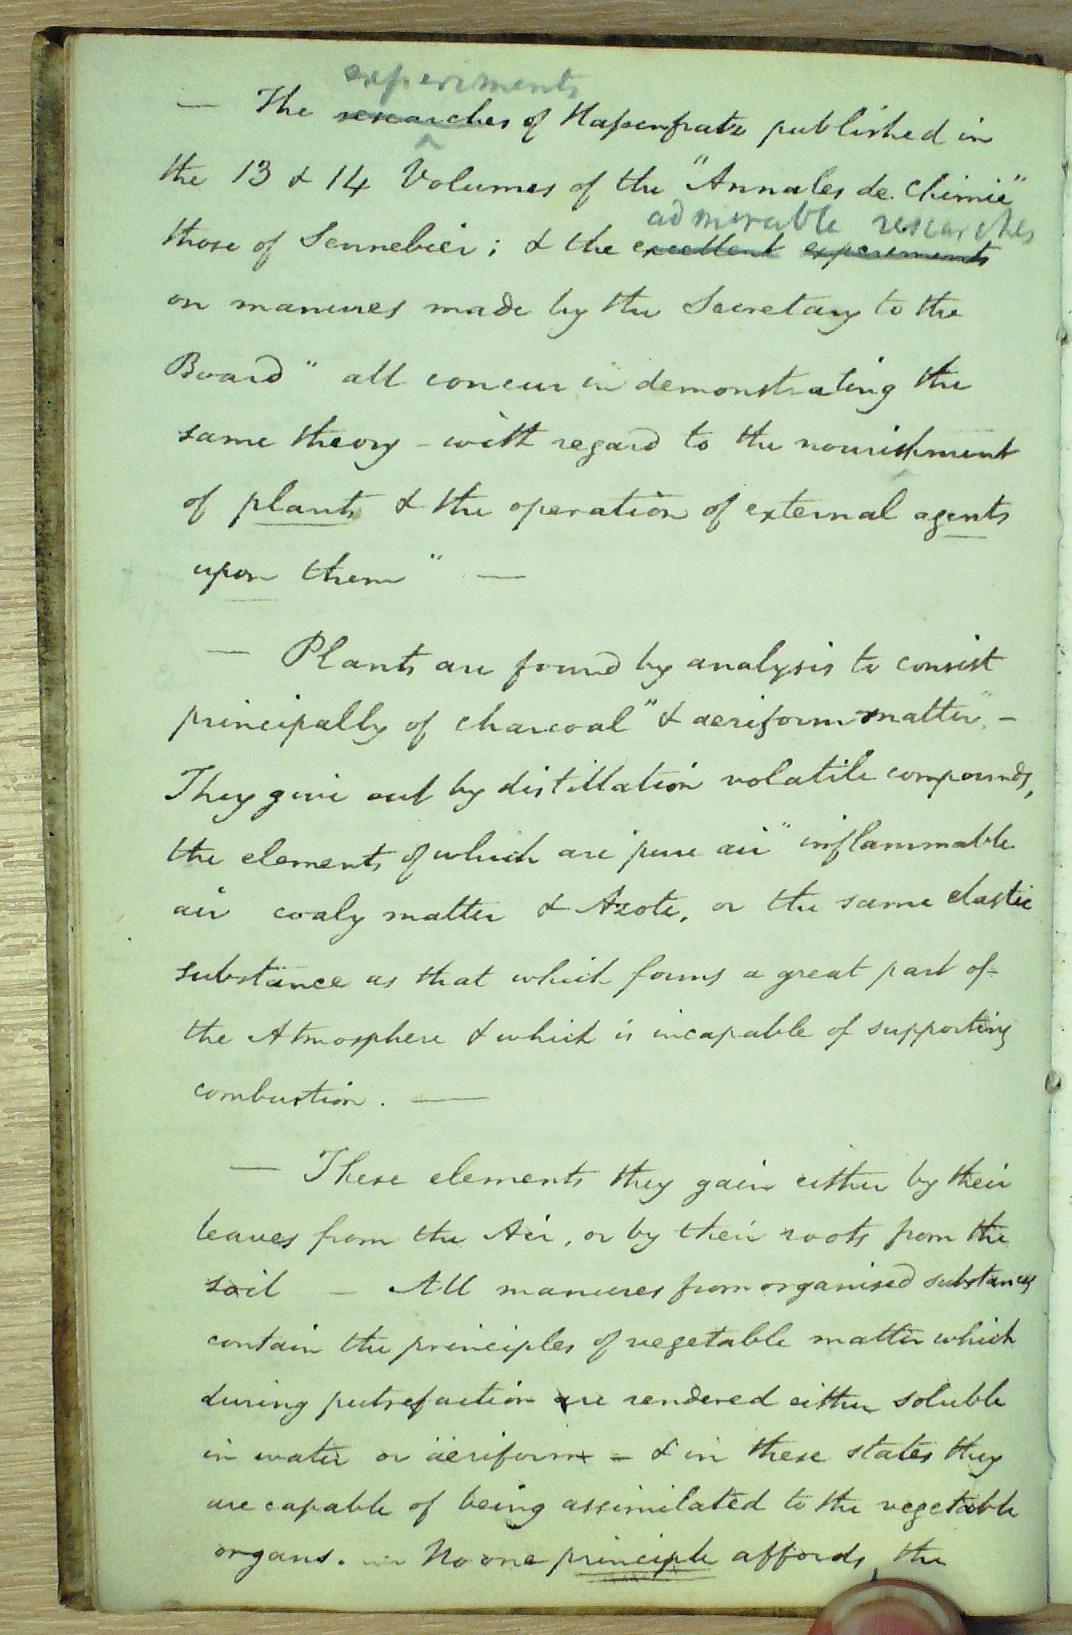 experiments
— The researches of Hassenfratz published in
the 13 & 14 Volumes of the "Annales de Chimie"
admirable researches
those of Sennebier; & the excellent experiments
on manures made by the Secretary to the
Board" all concur in demonstrating the
same theory - with regard to the nourishment
of plants & the operation of external agents
upon them" —
— Plants are found by analysis to consist
principally of charcoal" & aeriform matter" -
They give out by distillation volatile compounds,
the elements of which are pure air" inflammable
air coaly matter & Azote, or the same elastic
substance as that which forms a great part of
the Atmosphere & which is incapable of supporting
combustion. —
— These elements they gain either by their
leaves from the Air, or by their roots from the
soil — All manures from organised substances
contain the principles of vegetable matter which
during putrefaction are rendered either soluble
in water or äeriform = & in these states they
are capable of being assimilated to the vegetable
organs. — No one principle affords the